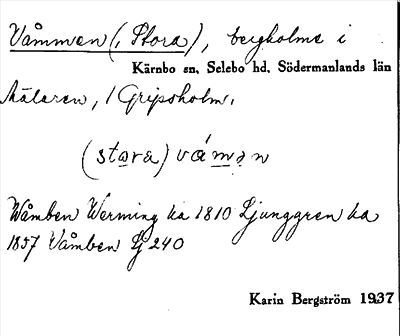 Våmmen (, Stora), bergholme i
Kärnbo sn, Selebo hd, Södermanlands län
Mälaren, / Gripsholm.
(stora) våmən
Wåmben Werming ka 1810 Ljunggren ka
1857 Våmben Lj 240
Karin Bergström 1937